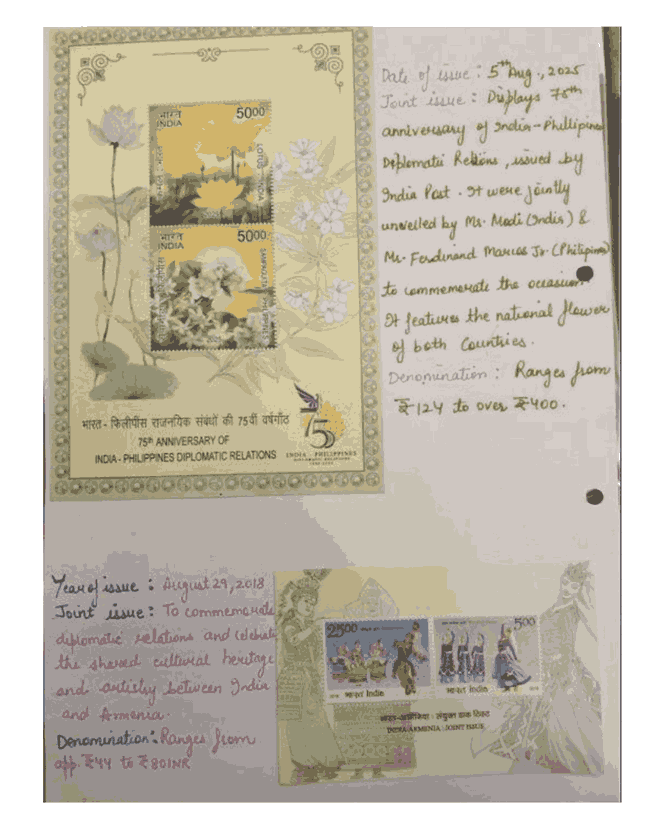 भारत
INDIA
5000
LOTUS - INDIA
भारत
INDIA
5000
SAMPAGUITA - PHILIPPINES
भारत - फिलीपींस राजनयिक संबंधों की 75वीं वर्षगाँठ
75th ANNIVERSARY OF
INDIA - PHILIPPINES DIPLOMATIC RELATIONS
75
INDIA - PHILIPPINES
Date of issue : 5th Aug., 2025
Joint issue : Displays 75th
anniversary of India-Phillipines
Diplomatic Reltions, issued by
India Post. It were jointly
unveiled by Mr. Modi (India) &
Mr. Ferdinand Marcos Jr. (Philipines)
to commemorate the occasion
It features the national flower
of both Countries.
Denomination : Ranges from
₹124 to over ₹400.
Year of issue : August 29, 2018
Joint issue : To commemorate
diplomatic relations and celebrate
the shared cultural heritage
and artistry between India
and Armenia.
Denomination : Ranges from
app. ₹44 to ₹80INR
2500
भारत India
500
भारत India
भारत-आर्मेनिया : संयुक्त डाक टिकट
INDIA ARMENIA : JOINT ISSUE